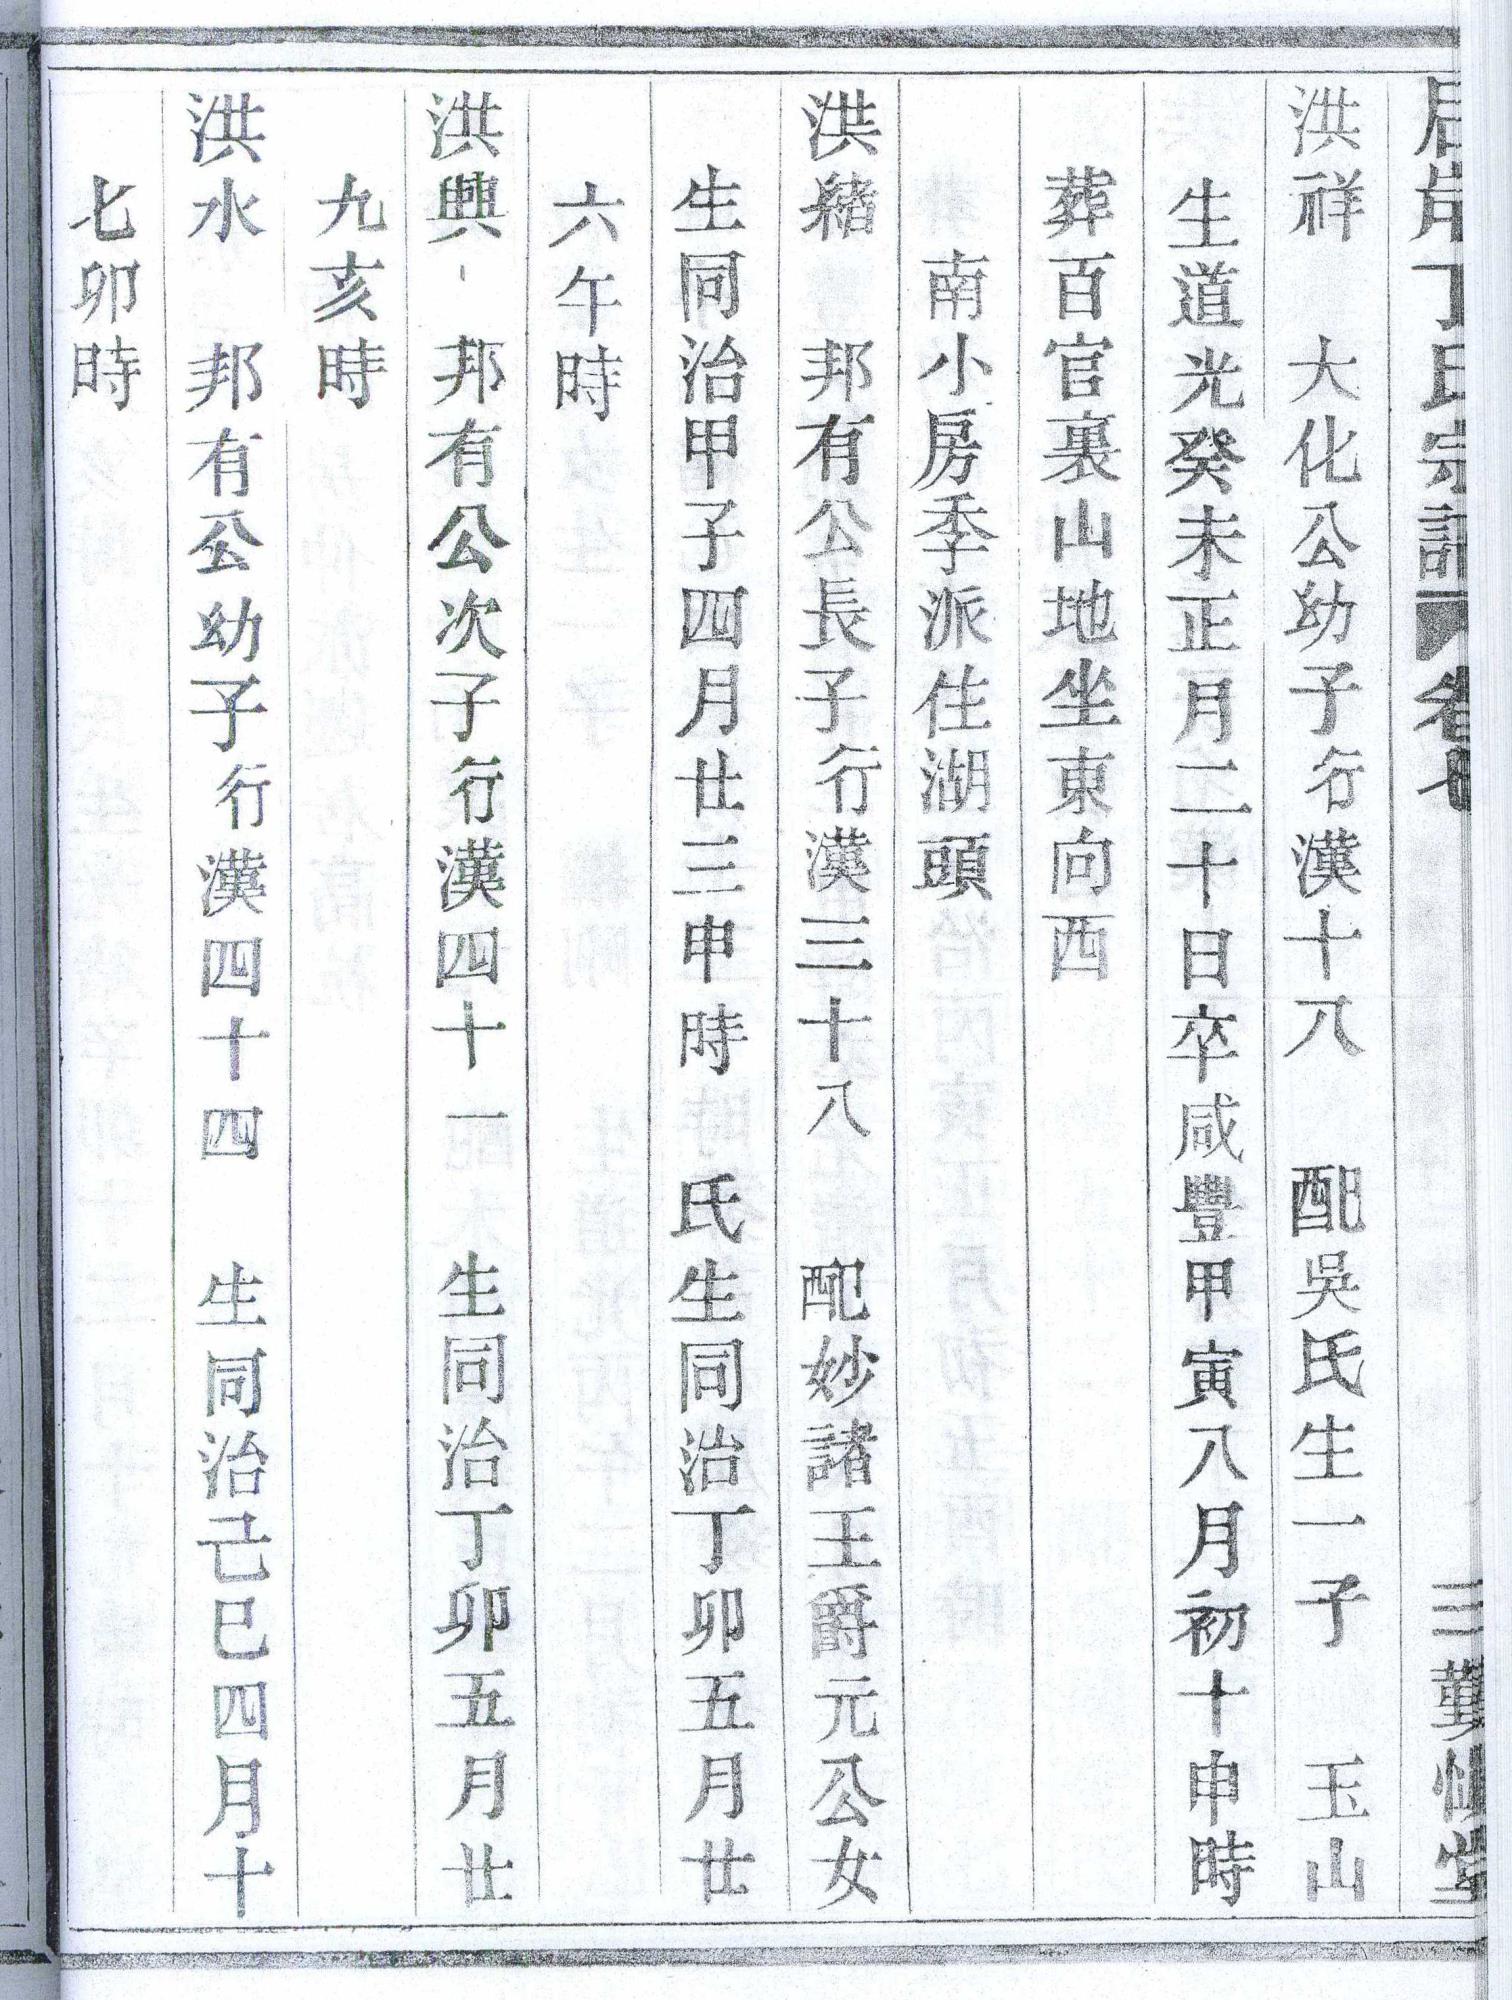 丁氏宗譜 卷七 三 勤慎堂
洪祥 大化公幼子行漢十八 配吳氏生一子 玉山
生道光癸未正月二十日卒咸豐甲寅八月初十申時
葬百官裏山地坐東向西
南小房季派住湖頭
洪緒 邦有公長子行漢三十八 配妙諸王爵元公女
生同治甲子四月廿三申時 氏生同治丁卯五月廿
六午時
洪興 邦有公次子行漢四十一 生同治丁卯五月廿
九亥時
洪水 邦有公幼子行漢四十四 生同治己巳四月十
七卯時